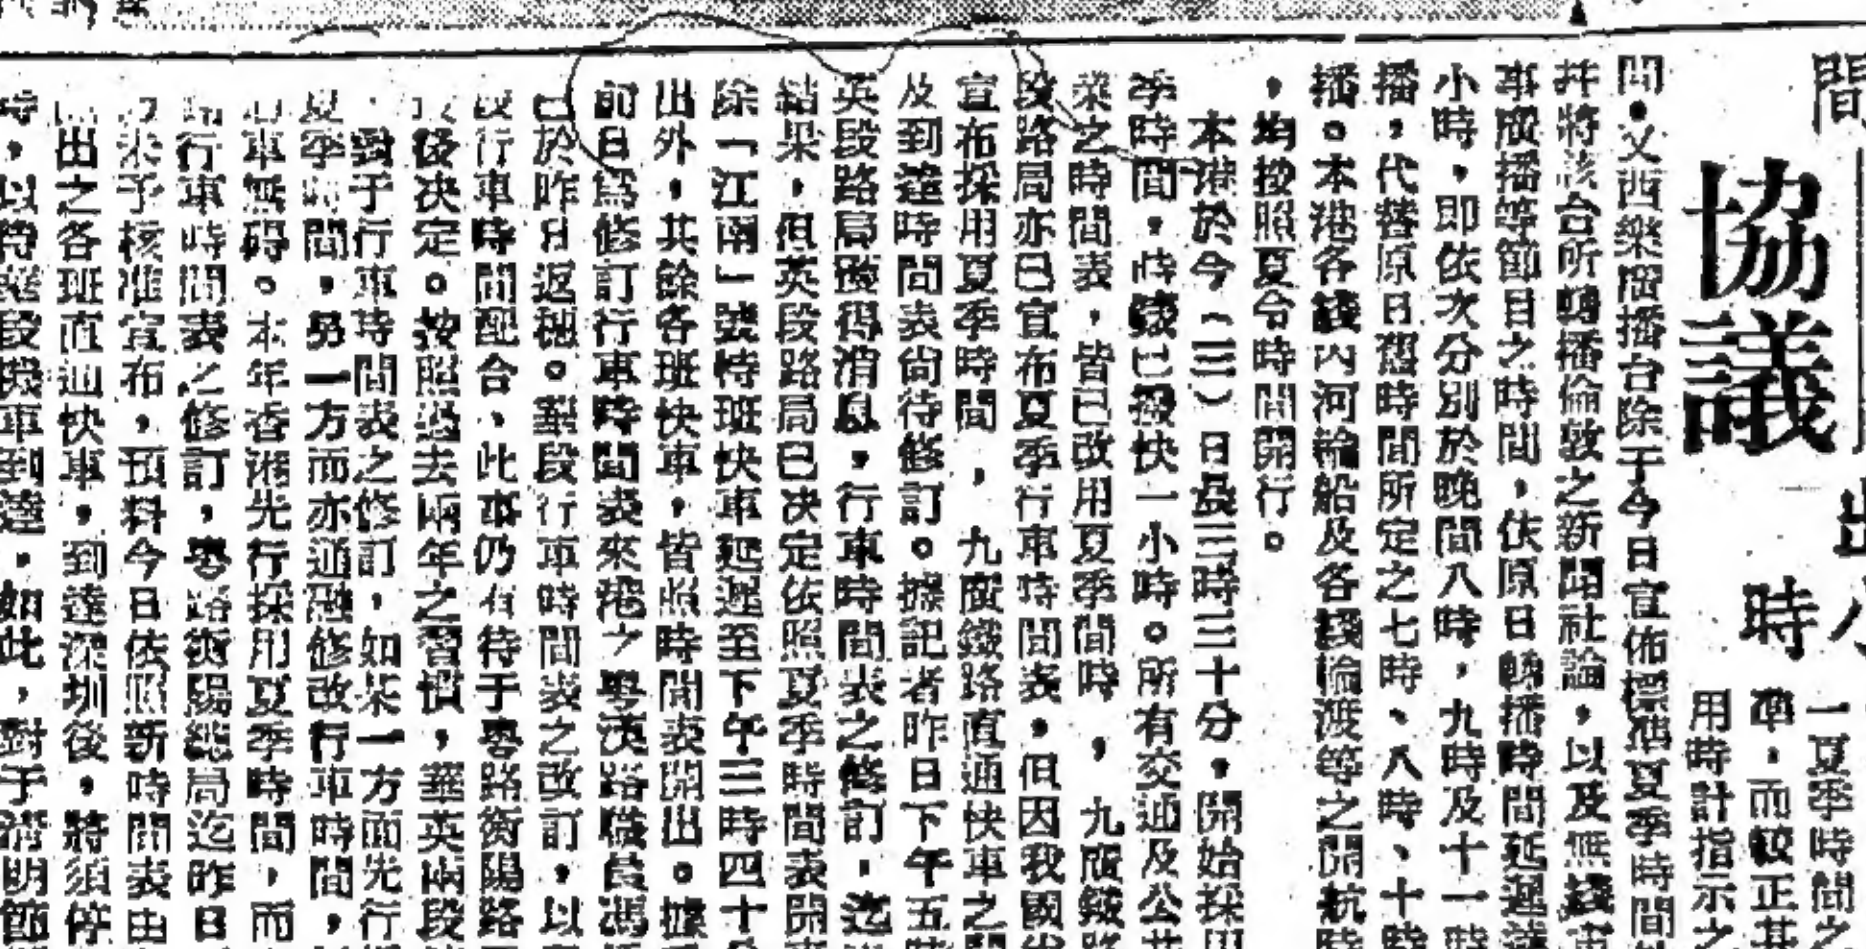 間
協議
時
一夏季時間之
準，而較正其
用時計指示之
間。又西樂廣播台除于今日宣佈標準夏季時間
幷將該台所轉播倫敦之新聞社論，以及無綫電
事廣播等節目之時間，依原日轉播時間延遲
小時，即依次分別於晚間八時，九時及十一時
播，代替原日舊時間所定之七時、八時、十時
播。本港各綫內河輪船及各綫輪渡等之開航時
，均按照夏令時間開行。
本港於今（三）日晨三時三十分，開始採用
季時間，時鐘已撥快一小時。所有交通及公共
業之時間表，皆已改用夏季間時，九廣鐵路
段路局亦已宣布夏季行車時間表，但因我國
宣布採用夏季時間，九廣鐵路直通快車之開
及到達時間表尙待修訂。據記者昨日下午五時
英段路局獲得消息，行車時間表之修訂，迄
結果，但英段路局已决定依照夏季時間表開
除「江南」號特班快車延遲至下午三時四十
出外，其餘各班快車，皆照時間表開出。據
前日爲修訂行車時間表來港之粤漢路職員馮
已於昨日返穗。華段行車時間表之改訂，以
行車時間配合、此事仍有待于粤路衡陽路
後决定。按照過去兩年之習慣，華英兩段
對于行車時間表之修訂，如某一方面先行
夏季時間，另一方而亦通融修改行車時間，
車無碍。本年香港先行採用夏季時間，而
行車時間表之修訂，粤路衡陽總局迄昨日
未予核准宣布，預料今日依照新時間表由
出之各班直通快車，到達深圳後，將須停
時，以待華段機車到達，如此，對于淸明節